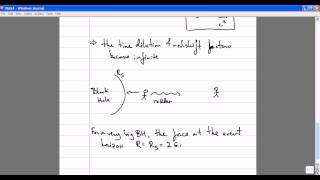 Note1 - Windows Journal
c²
⇒ the time dilation & redshift factors
become infinite
Rs
Black
Hole
redder
For a very big BH, the force at the event
horizon R = Rs = 2G